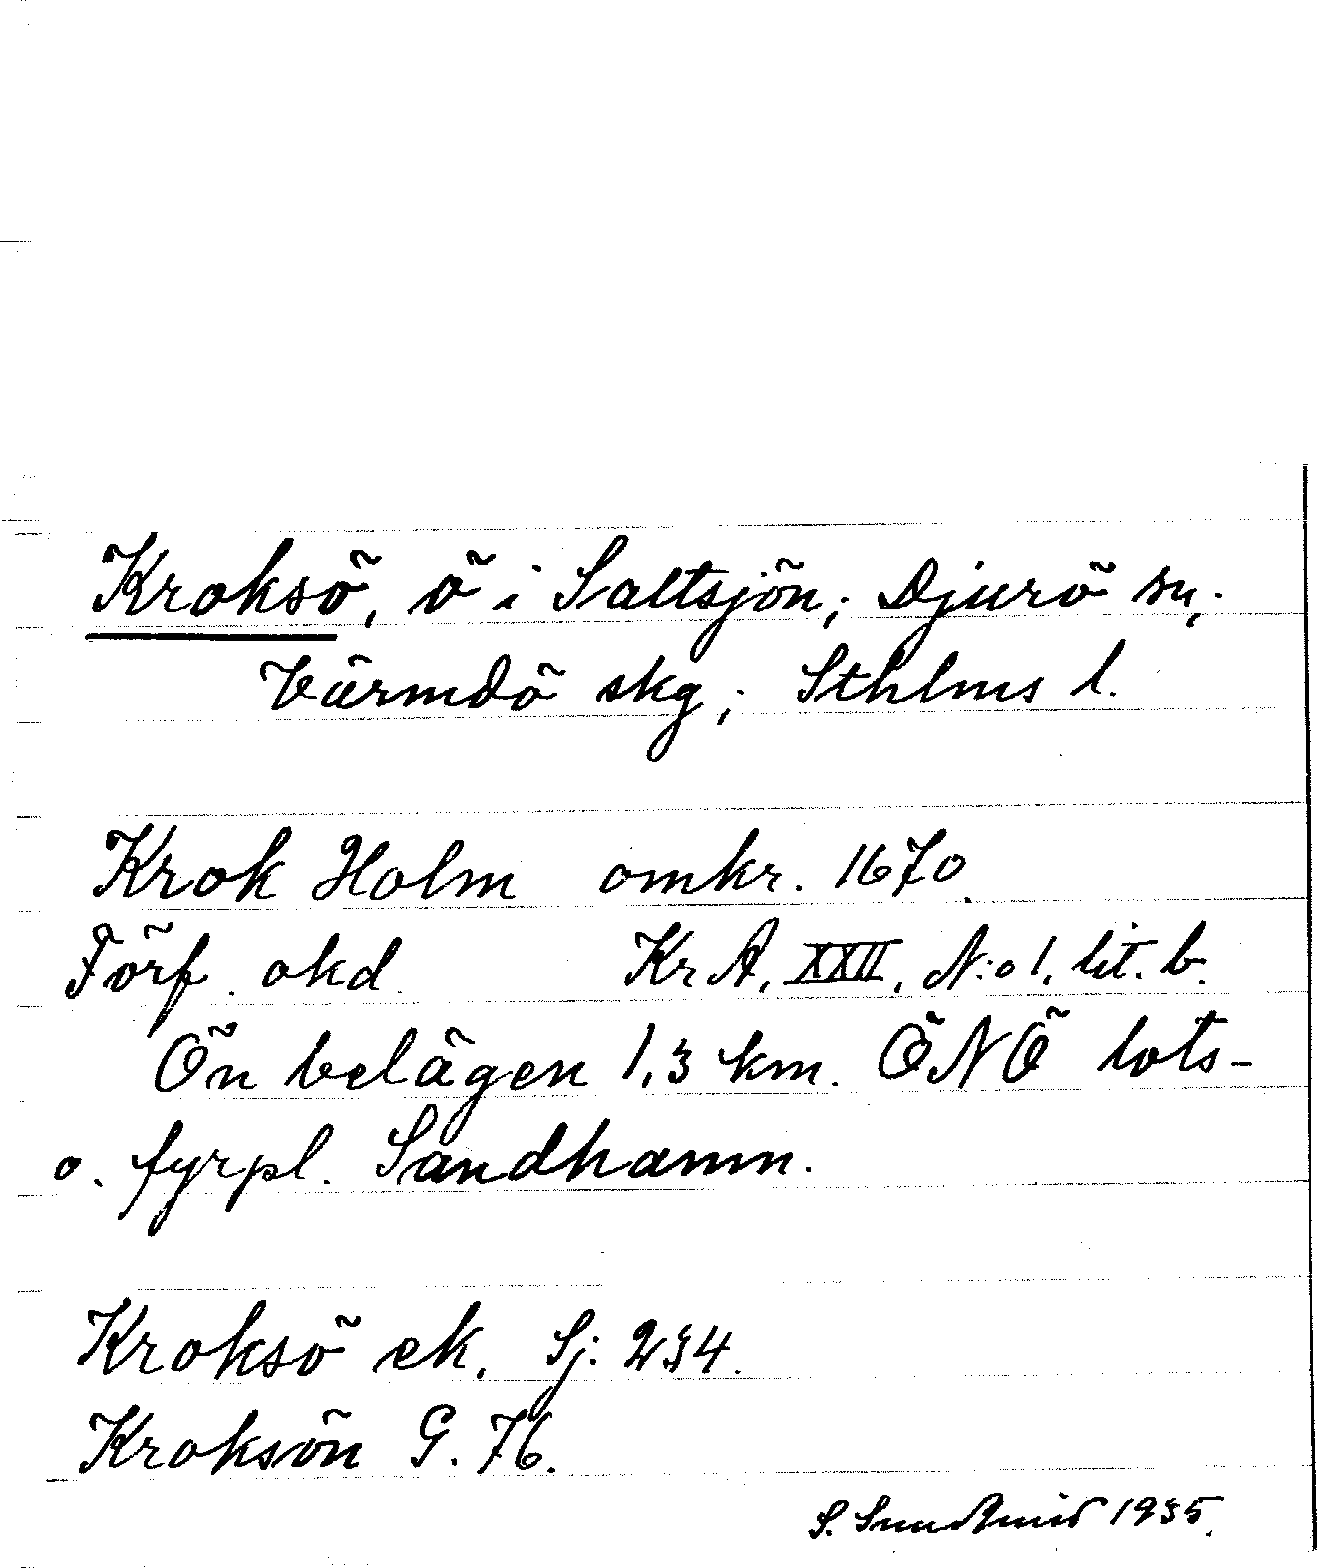 Kroksö, ö i Saltsjön; Djurö sn;
Värmdö skg; Sthlms l.
Krok Holm omkr. 1670.
Förf. okd. KrA, XXII, N:o 1. lit. b.
Ön belägen 1,3 km. ÖNÖ lots-
o. fyrpl. Sandhamn.
Kroksö ek. Sj: 234.
Kroksön G. 76.
S. 1935.